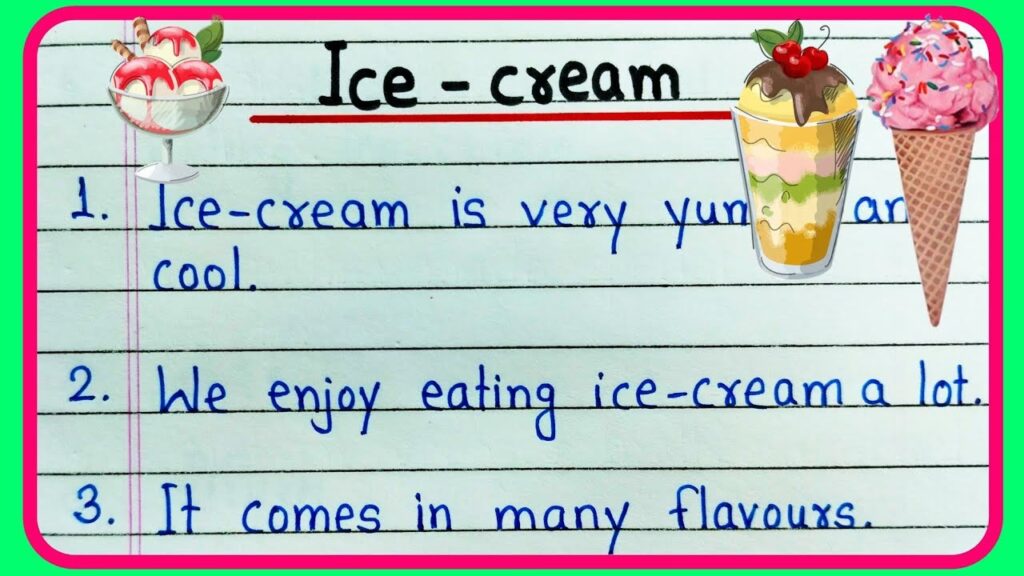 Ice - cream
1. Ice-cream is very
cool.
2. We enjoy eating ice-cream a lot.
3. It comes in many flavours.